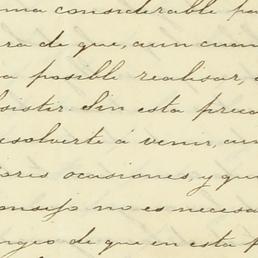 ma considerable pa
ra de que, aun cuan
a posible realisar,
sistir. Sin esta preca
esolverte á venir, aun
ores ocasiones, y que
onsejo no es necesa
ngeo de que en esta p